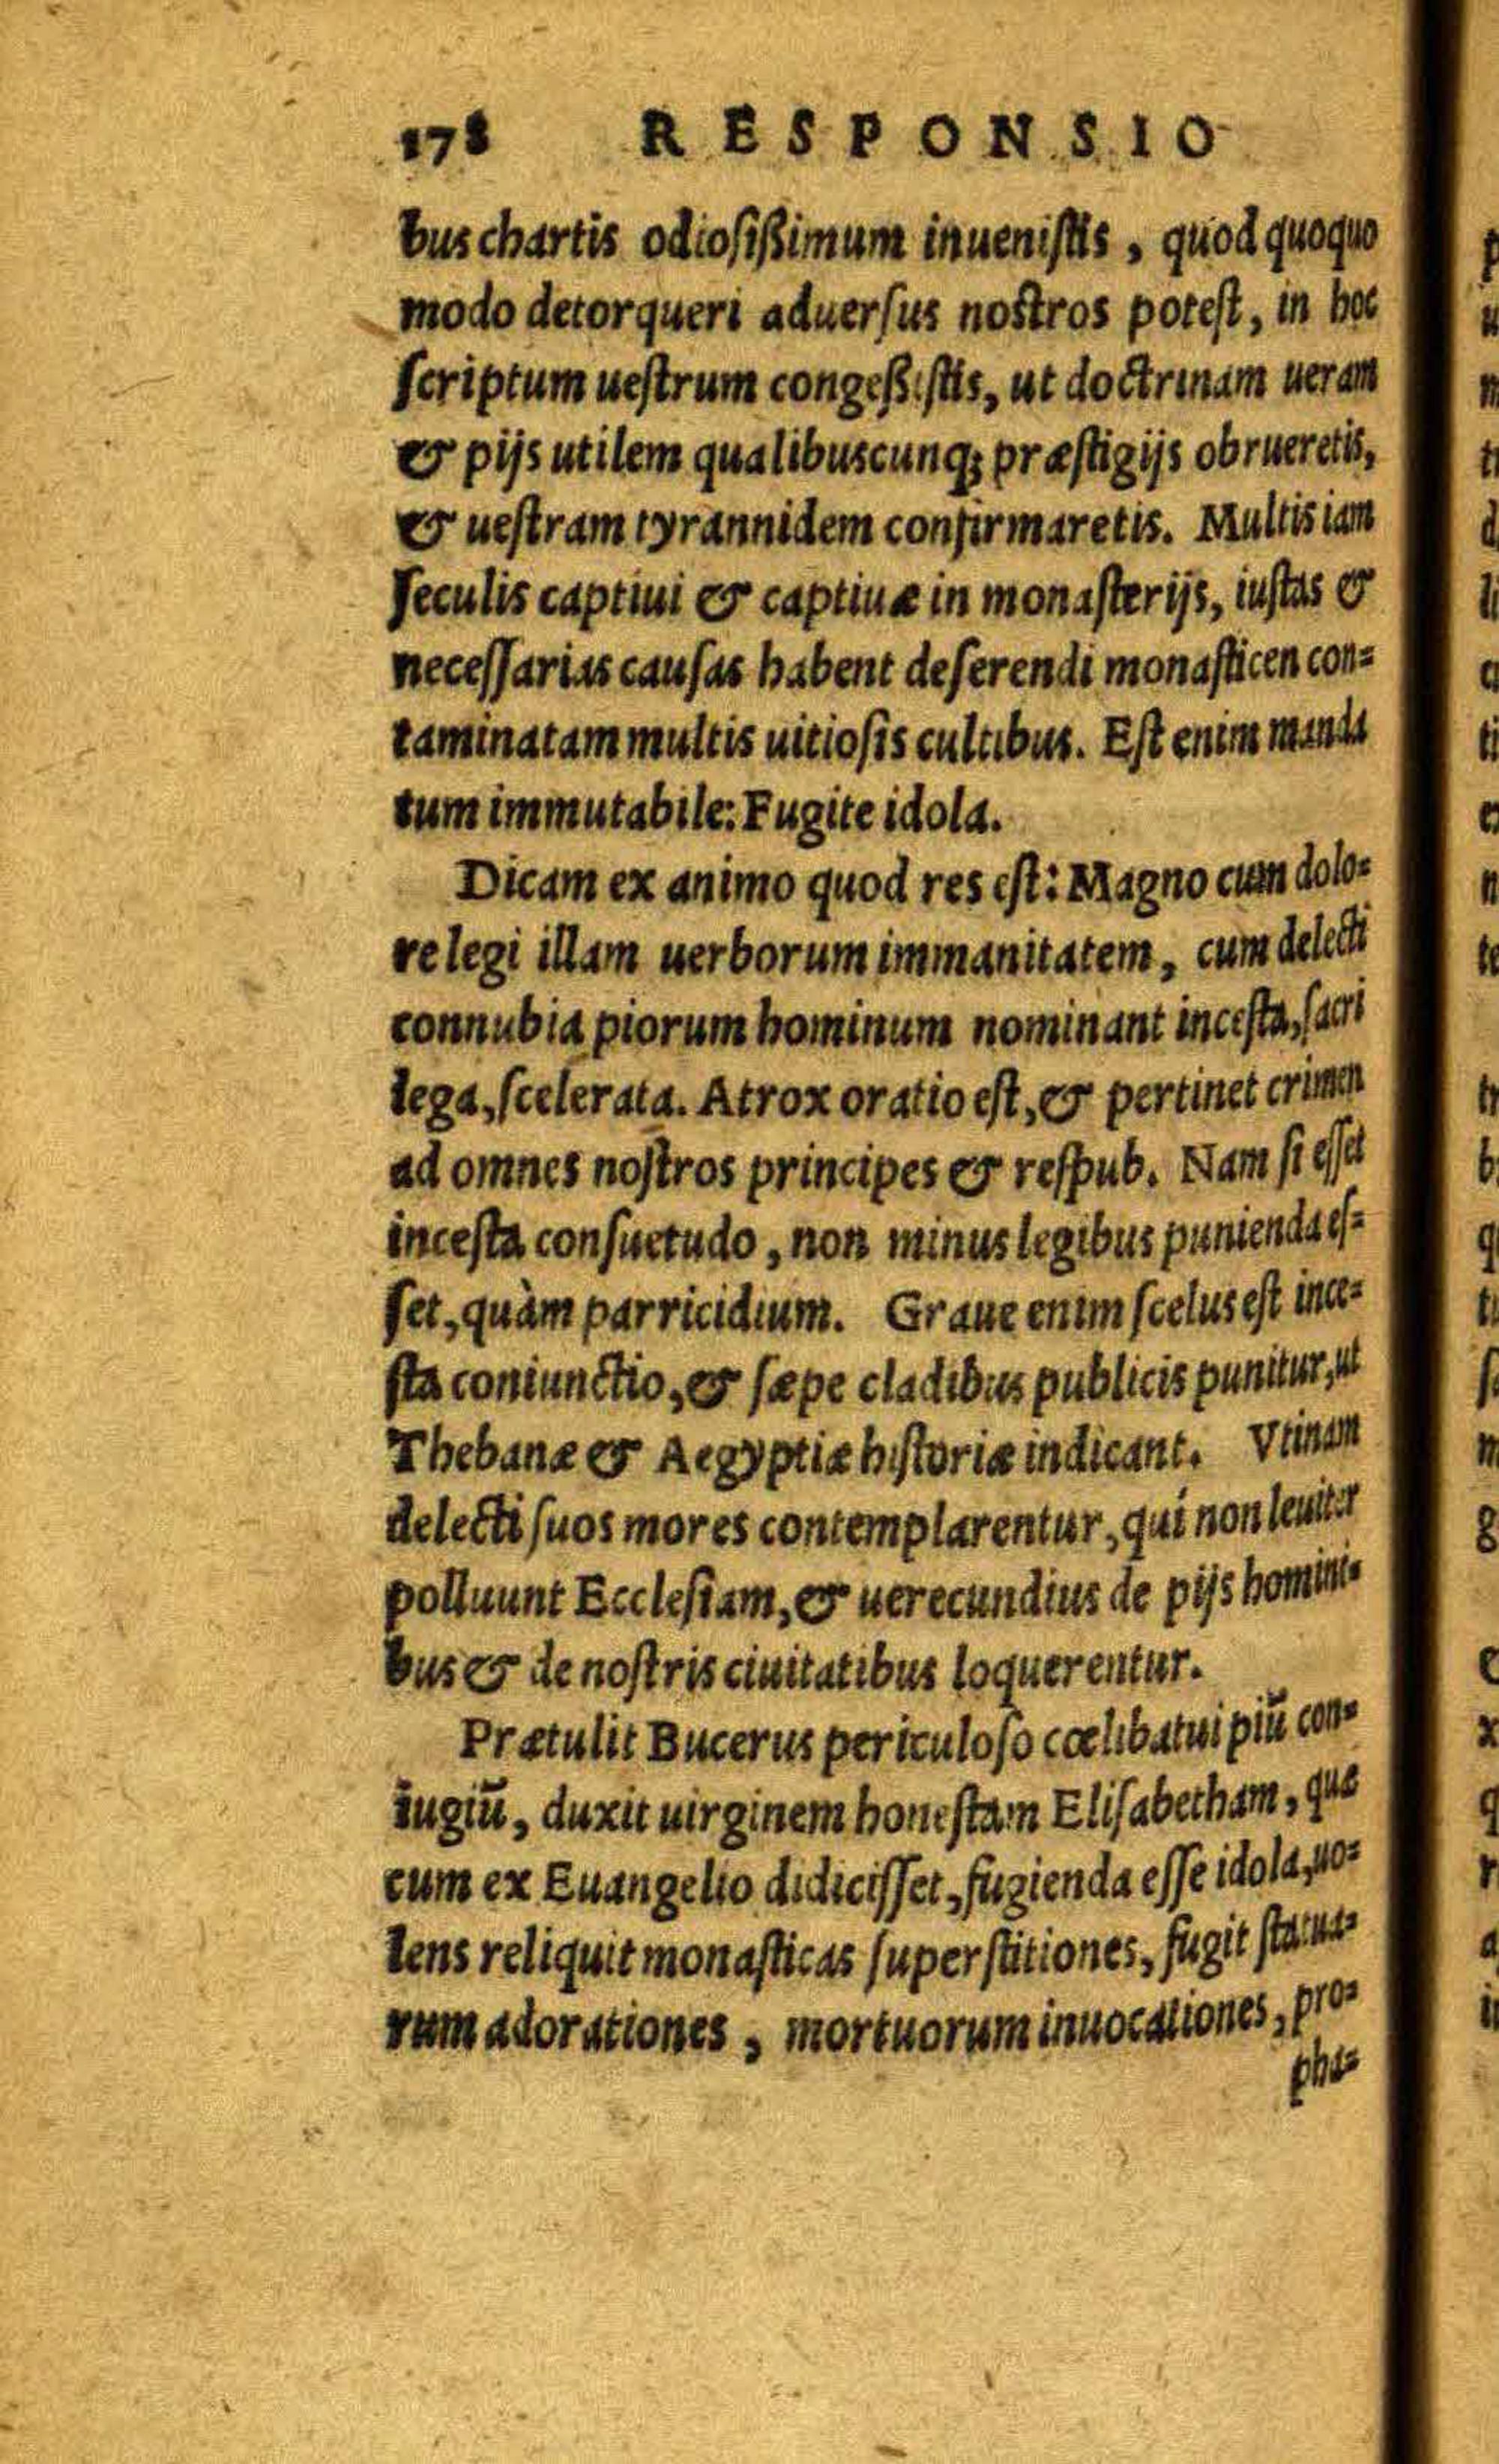 178 RESPONSIO
bus chartis odiosißimum inuenistis, quod quoquo
modo detorqueri aduersus nostros potest, in hoc
scriptum uestrum congeßistis, ut doctrinam ueram
& pijs utilem qualibuscunq; præstigijs obrueretis,
& uestram tyrannidem confirmaretis. Multis iam
seculis captiui & captiuæ in monasterijs, iustas &
necessarias causas habent deserendi monasticen con=
taminatam multis uitiosis cultibus. Est enim manda
tum immutabile: Fugite idola.
Dicam ex animo quod res est: Magno cum dolo=
re legi illam uerborum immanitatem, cum delecti
connubia piorum hominum nominant incesta, sacri
lega, scelerata. Atrox oratio est, & pertinet crimen
ad omnes nostros principes & respub. Nam si esset
incesta consuetudo, non minus legibus punienda es=
set, quàm parricidium. Graue enim scelus est ince=
sta coniunctio, & sæpe cladibus publicis punitur, ut
Thebanæ & Aegyptiæ historiæ indicant. Vtinam
delecti suos mores contemplarentur, qui non leuiter
polluunt Ecclesiam, & uerecundius de pijs homini=
bus & de nostris ciuitatibus loquerentur.
Prætulit Bucerus periculoso cœlibatui piū con=
iugiū, duxit uirginem honestam Elisabetham, quæ
cum ex Euangelio didicisset, fugienda esse idola, uo=
lens reliquit monasticas superstitiones, fugit statua=
rum adorationes, mortuorum inuocationes, pro=
pha=